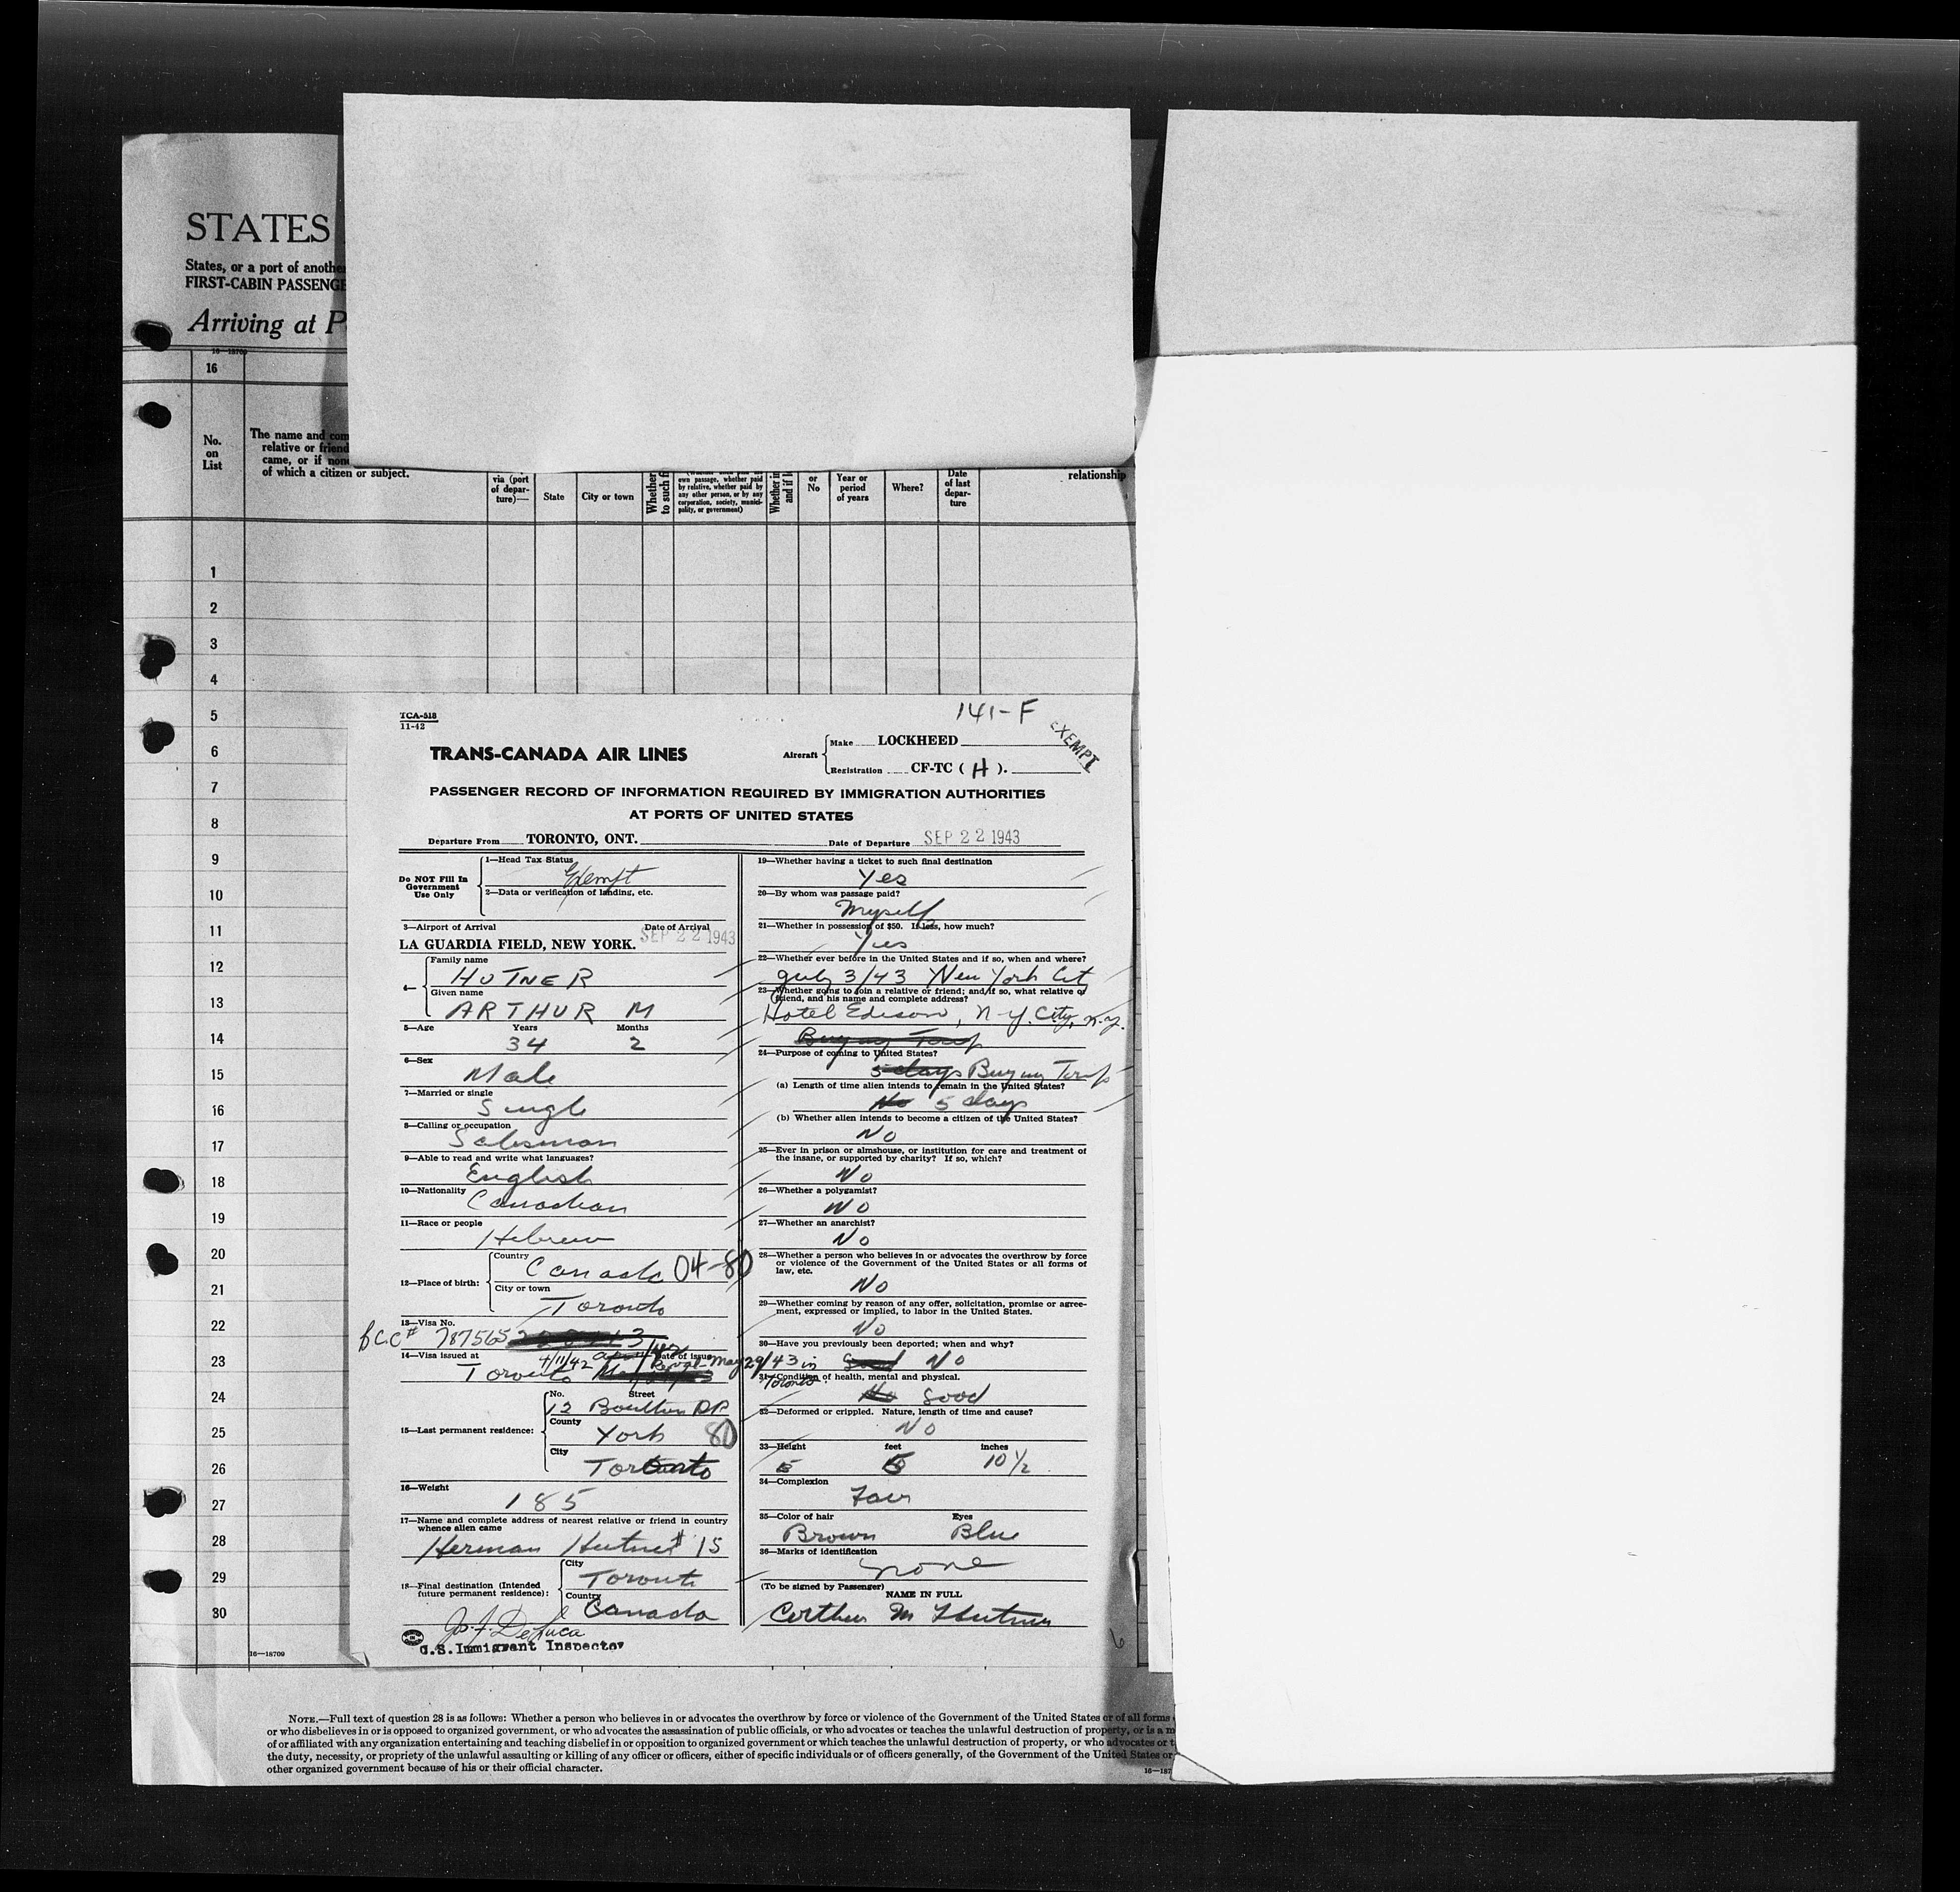 STATES
States, or a port of anothe
FIRST-CABIN PASSENGE
Arriving at P
16—18709
16
No.
on
List
The name and com
relative or friend
came, or if non
of which a citizen or subject.
via (port
of depar-
ture)—
State
City or town
Whether
to such f
own passage, whether paid
by relative, whether paid by
any other person, or by any
corporation, society, munici-
pality, or government)
Whether in
and if l
or
No
Year or
period
of years
Where?
Date
of last
depar-
ture
relationship
1
2
3
4
5
6
7
8
9
10
11
12
13
14
15
16
17
18
19
20
21
22
23
24
25
26
27
28
29
30
16—18709
TCA-518
11-42
141-F
EXEMPT
TRANS-CANADA AIR LINES
Aircraft
Make LOCKHEED
Registration CF-TC ( H ).
PASSENGER RECORD OF INFORMATION REQUIRED BY IMMIGRATION AUTHORITIES
AT PORTS OF UNITED STATES
Departure From TORONTO, ONT.
Date of Departure SEP 22 1943
Do NOT Fill In
Government
Use Only
1—Head Tax Status
Exempt
2—Data or verification of landing, etc.
3—Airport of Arrival Date of Arrival
LA GUARDIA FIELD, NEW YORK. SEP 22 1943
4—
Family name
HUTNER
Given name
ARTHUR M
5—Age Years Months
34 2
6—Sex
Male
7—Married or single
Single
8—Calling or occupation
Salesman
9—Able to read and write what languages?
English
10—Nationality
Canadian
11—Race or people
Hebrew
12—Place of birth:
Country
Canada 04-80
City or town
Toronto
13—Visa No.
BCC# 787565
14—Visa issued at Date of issue
Toronto 4/11/42 Reval-May 29/43 in
Toronto
15—Last permanent residence:
No. Street
12 Boulton DR
County
York 80
City
Toronto
16—Weight
185
17—Name and complete address of nearest relative or friend in country
whence alien came
Herman Hutner # 15
18—Final destination (Intended
future permanent residence):
City
Toronto
Country
Canada
Jos. J. DeLuca
U.S. Immigrant Inspector
19—Whether having a ticket to such final destination
Yes
20—By whom was passage paid?
Myself
21—Whether in possession of $50. If less, how much?
Yes
22—Whether ever before in the United States and if so, when and where?
July 3/43 New York City
23—Whether going to join a relative or friend; and if so, what relative or
friend, and his name and complete address?
Hotel Edison, N-Y. City, N.Y.
24—Purpose of coming to United States?
5 days Buying
(a) Length of time alien intends to remain in the United States?
No 5 days
(b) Whether alien intends to become a citizen of the United States?
No
25—Ever in prison or almshouse, or institution for care and treatment of
the insane, or supported by charity? If so, which?
No
26—Whether a polygamist?
No
27—Whether an anarchist?
No
28—Whether a person who believes in or advocates the overthrow by force
or violence of the Government of the United States or all forms of
law, etc.
No
29—Whether coming by reason of any offer, solicitation, promise or agree-
ment, expressed or implied, to labor in the United States.
No
30—Have you previously been deported; when and why?
Good No
31—Condition of health, mental and physical.
No Good
32—Deformed or crippled. Nature, length of time and cause?
No
33—Height feet inches
5 10 1/2
34—Complexion
Fair
35—Color of hair Eyes
Brown Blue
36—Marks of identification
none
(To be signed by Passenger)
NAME IN FULL
Arthur M Hutner
6
NOTE.—Full text of question 28 is as follows: Whether a person who believes in or advocates the overthrow by force or violence of the Government of the United States or of all forms
or who disbelieves in or is opposed to organized government, or who advocates the assassination of public officials, or who advocates or teaches the unlawful destruction of property, or is a m
of or affiliated with any organization entertaining and teaching disbelief in or opposition to organized government or which teaches the unlawful destruction of property, or who advocates or t
the duty, necessity, or propriety of the unlawful assaulting or killing of any officer or officers, either of specific individuals or of officers generally, of the Government of the United States or
other organized government because of his or their official character.
16—187